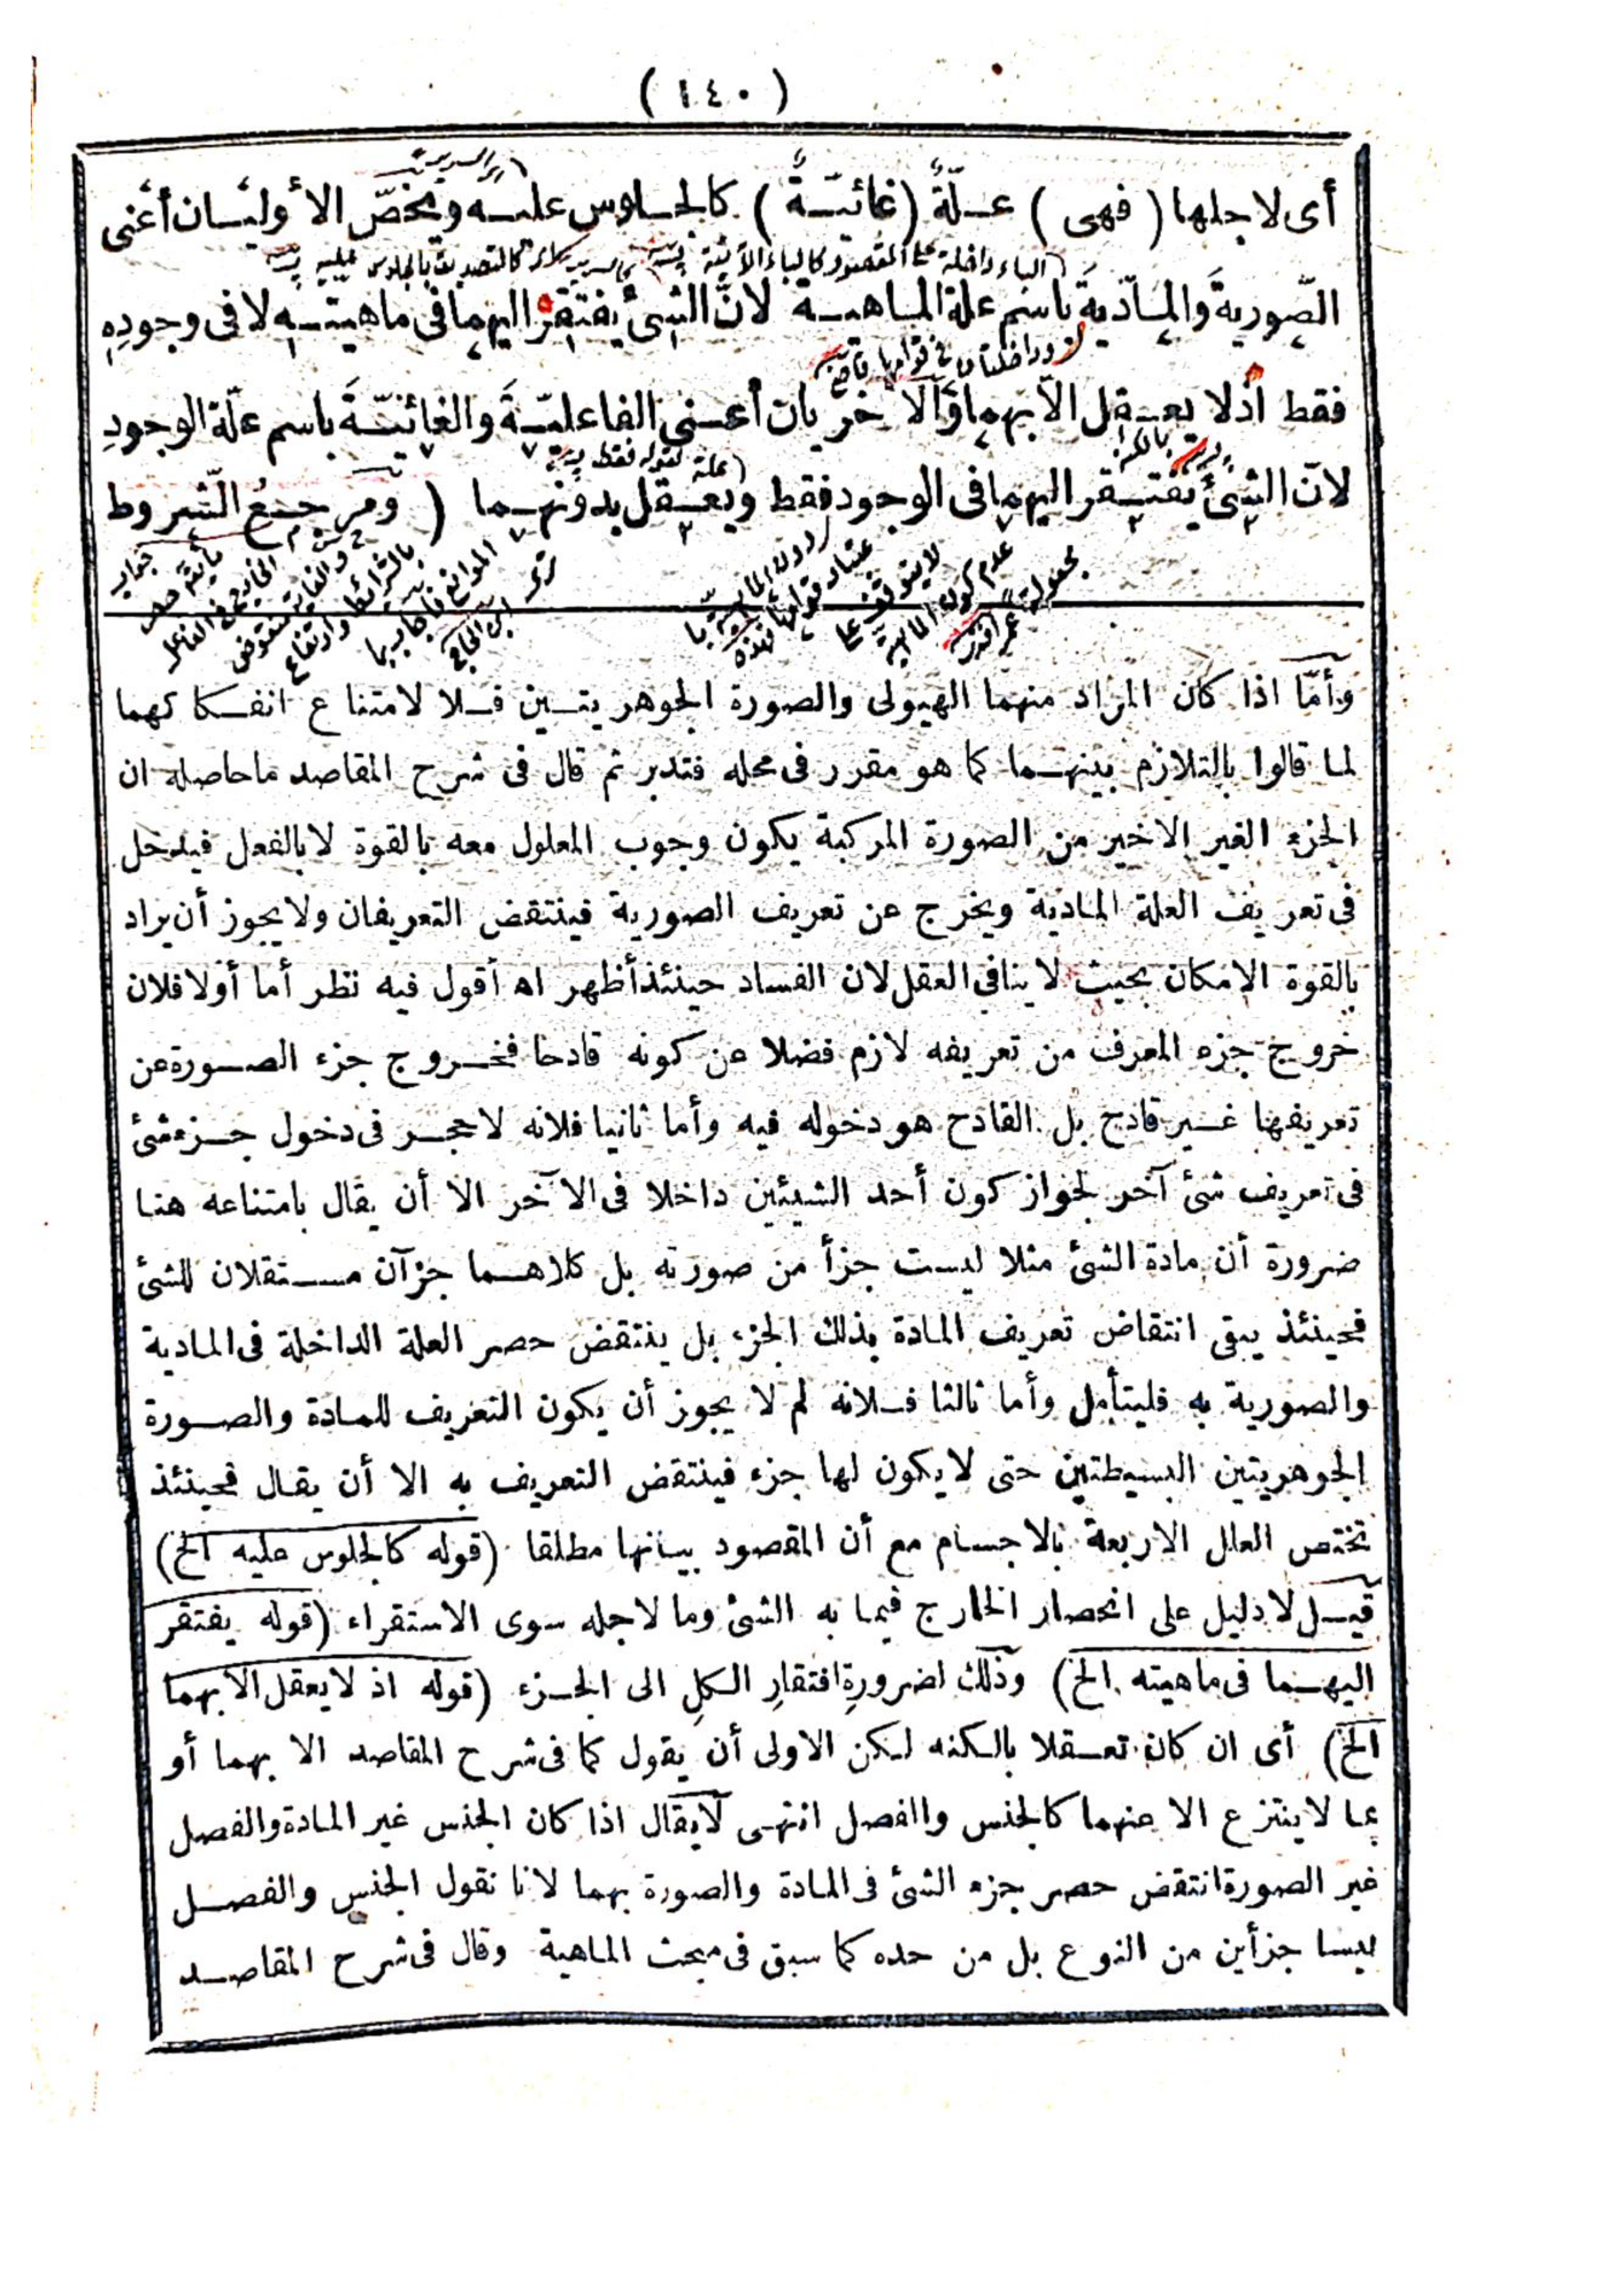 ( ١٤٠ )
أى لاجلها ( فهى ) علّةٌ ( غائيّةٌ ) كالجلوس عليه ويخصّ الأوليان أعنى
الصّوريةَ والمادّيةَ باسم علة الماهية لانّ الشئ يفتقر اليهما فى ماهيته لا فى وجودِهِ
فقط اذ لا يعقل الا بهما والآخريان أعنى الفاعليّةَ والغائيّةَ باسم علّة الوجودِ
لانّ الشئَ يفتقر اليهما فى الوجود فقط ويعقل بدونهما ( ومرجعُ الشّروط
وأمّا اذا كان المراد منهما الهيولى والصورة الجوهريتين فلا لامتناع انفكاكهما
لما قالوا بالتلازم بينهما كما هو مقرر فى محله فتدبر ثم قال فى شرح المقاصد ما حاصله ان
الجزء الغير الاخير من الصورة المركبة يكون وجوب المعلول معه بالقوة لا بالفعل فيدخل
فى تعريف العلة المادية ويخرج عن تعريف الصورية فينتقض التعريفان ولا يجوز أن يراد
بالقوة الامكان بحيث لا ينافى العقل لان الفساد حينئذ أظهر اه أقول فيه نظر أما أولا فلان
خروج جزء المعرف من تعريفه لازم فضلا عن كونه قادحا فخروج جزء الصورة عن
تعريفها غير قادح بل القادح هو دخوله فيه وأما ثانيا فلانه لا حجر فى دخول جزء شئ
فى تعريف شئ آخر لجواز كون أحد الشيئين داخلا فى الآخر الا أن يقال بامتناعه هنا
ضرورة أن مادة الشئ مثلا ليست جزأ من صورته بل كلاهما جزآن مستقلان للشئ
فحينئذ يبقى انتقاض تعريف المادة بذلك الجزء بل ينتقض حصر العلة الداخلة فى المادية
والصورية به فليتأمل وأما ثالثا فلانه لم لا يجوز أن يكون التعريف للمادة والصورة
الجوهريتين البسيطتين حتى لا يكون لها جزء فينتقض التعريف به الا أن يقال فحينئذ
تختص العلل الاربعة بالاجسام مع أن المقصود بيانها مطلقا (قوله كالجلوس عليه الخ)
قيل لا دليل على انحصار الخارج فيما به الشئ وما لاجله سوى الاستقراء (قوله يفتقر
اليهما فى ماهيته الخ) وذلك لضرورةِ افتقارِ الكلِ الى الجزء (قوله اذ لا يعقل الا بهما
الخ) أى ان كان تعقلا بالكنه لكن الاولى أن يقول كما فى شرح المقاصد الا بهما أو
بما لا ينتزع الا عنهما كالجنس واالفصل انتهى لا يقال اذا كان الجنس غير المادة والفصل
غير الصورة انتقض حصر جزء الشئ فى المادة والصورة بهما لانا نقول الجنس والفصل
ليسا جزأين من النوع بل من حده كما سبق فى مبحث الماهية وقال فى شرح المقاصد